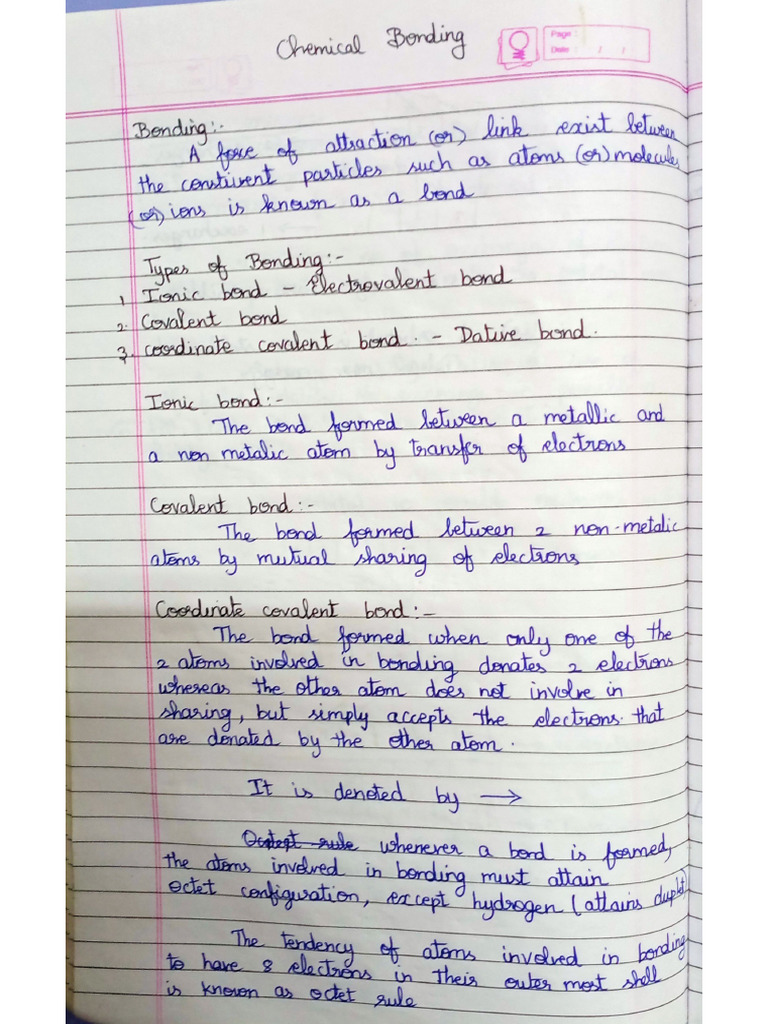 Chemical Bonding
Page :
Date : / /
Bonding:-
A force of attraction (or) link exist between
the constivent particles such as atoms (or) molecules
(or) ions is known as a bond
Types of Bonding:-
1. Ionic bond - Electrovalent bond
2. Covalent bond
3. coordinate covalent bond. - Dative bond.
Ionic bond:-
The bond formed between a metallic and
a non metalic atom by transfer of electrons
Covalent bond:-
The bond formed between 2 non-metalic
atoms by mutual sharing of electrons
Coordinate covalent bond:-
The bond formed when only one of the
2 atoms involved in bonding donates 2 electrons
whereas the other atom does not involve in
sharing, but simply accepts the electrons that
are donated by the other atom.
It is denoted by →
whenever a bond is formed,
the atoms involved in bonding must attain
octet configuration, except hydrogen (attains duplet)
The tendency of atoms involved in bonding
to have 8 electrons in their outer most shell
is known as octet rule